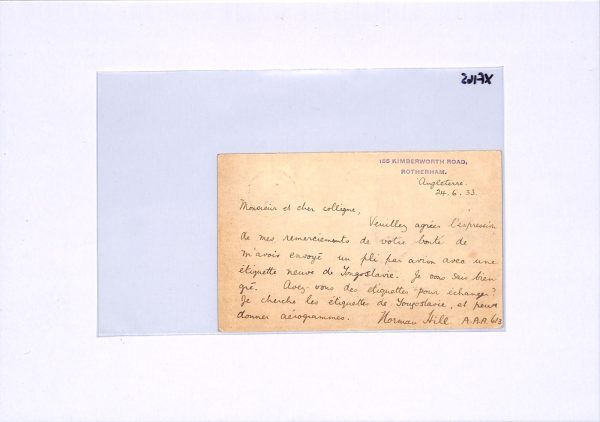 SU17X
155 KIMBERWORTH ROAD,
ROTHERHAM.
Angleterre.
24.6.33.
Monsieur et cher collègue,
Veuillez agréer l'expression
de mes remerciements de votre bonté de
m'avoir envoyé un pli par avion avec une
étiquette neuve de Yougoslavie. Je vous sais bien
gré. Avez-vous des étiquettes pour échange?
Je cherche les étiquettes de Yougoslavie, et peux
donner aérogrammes. Norman Hill A.A.A. 613